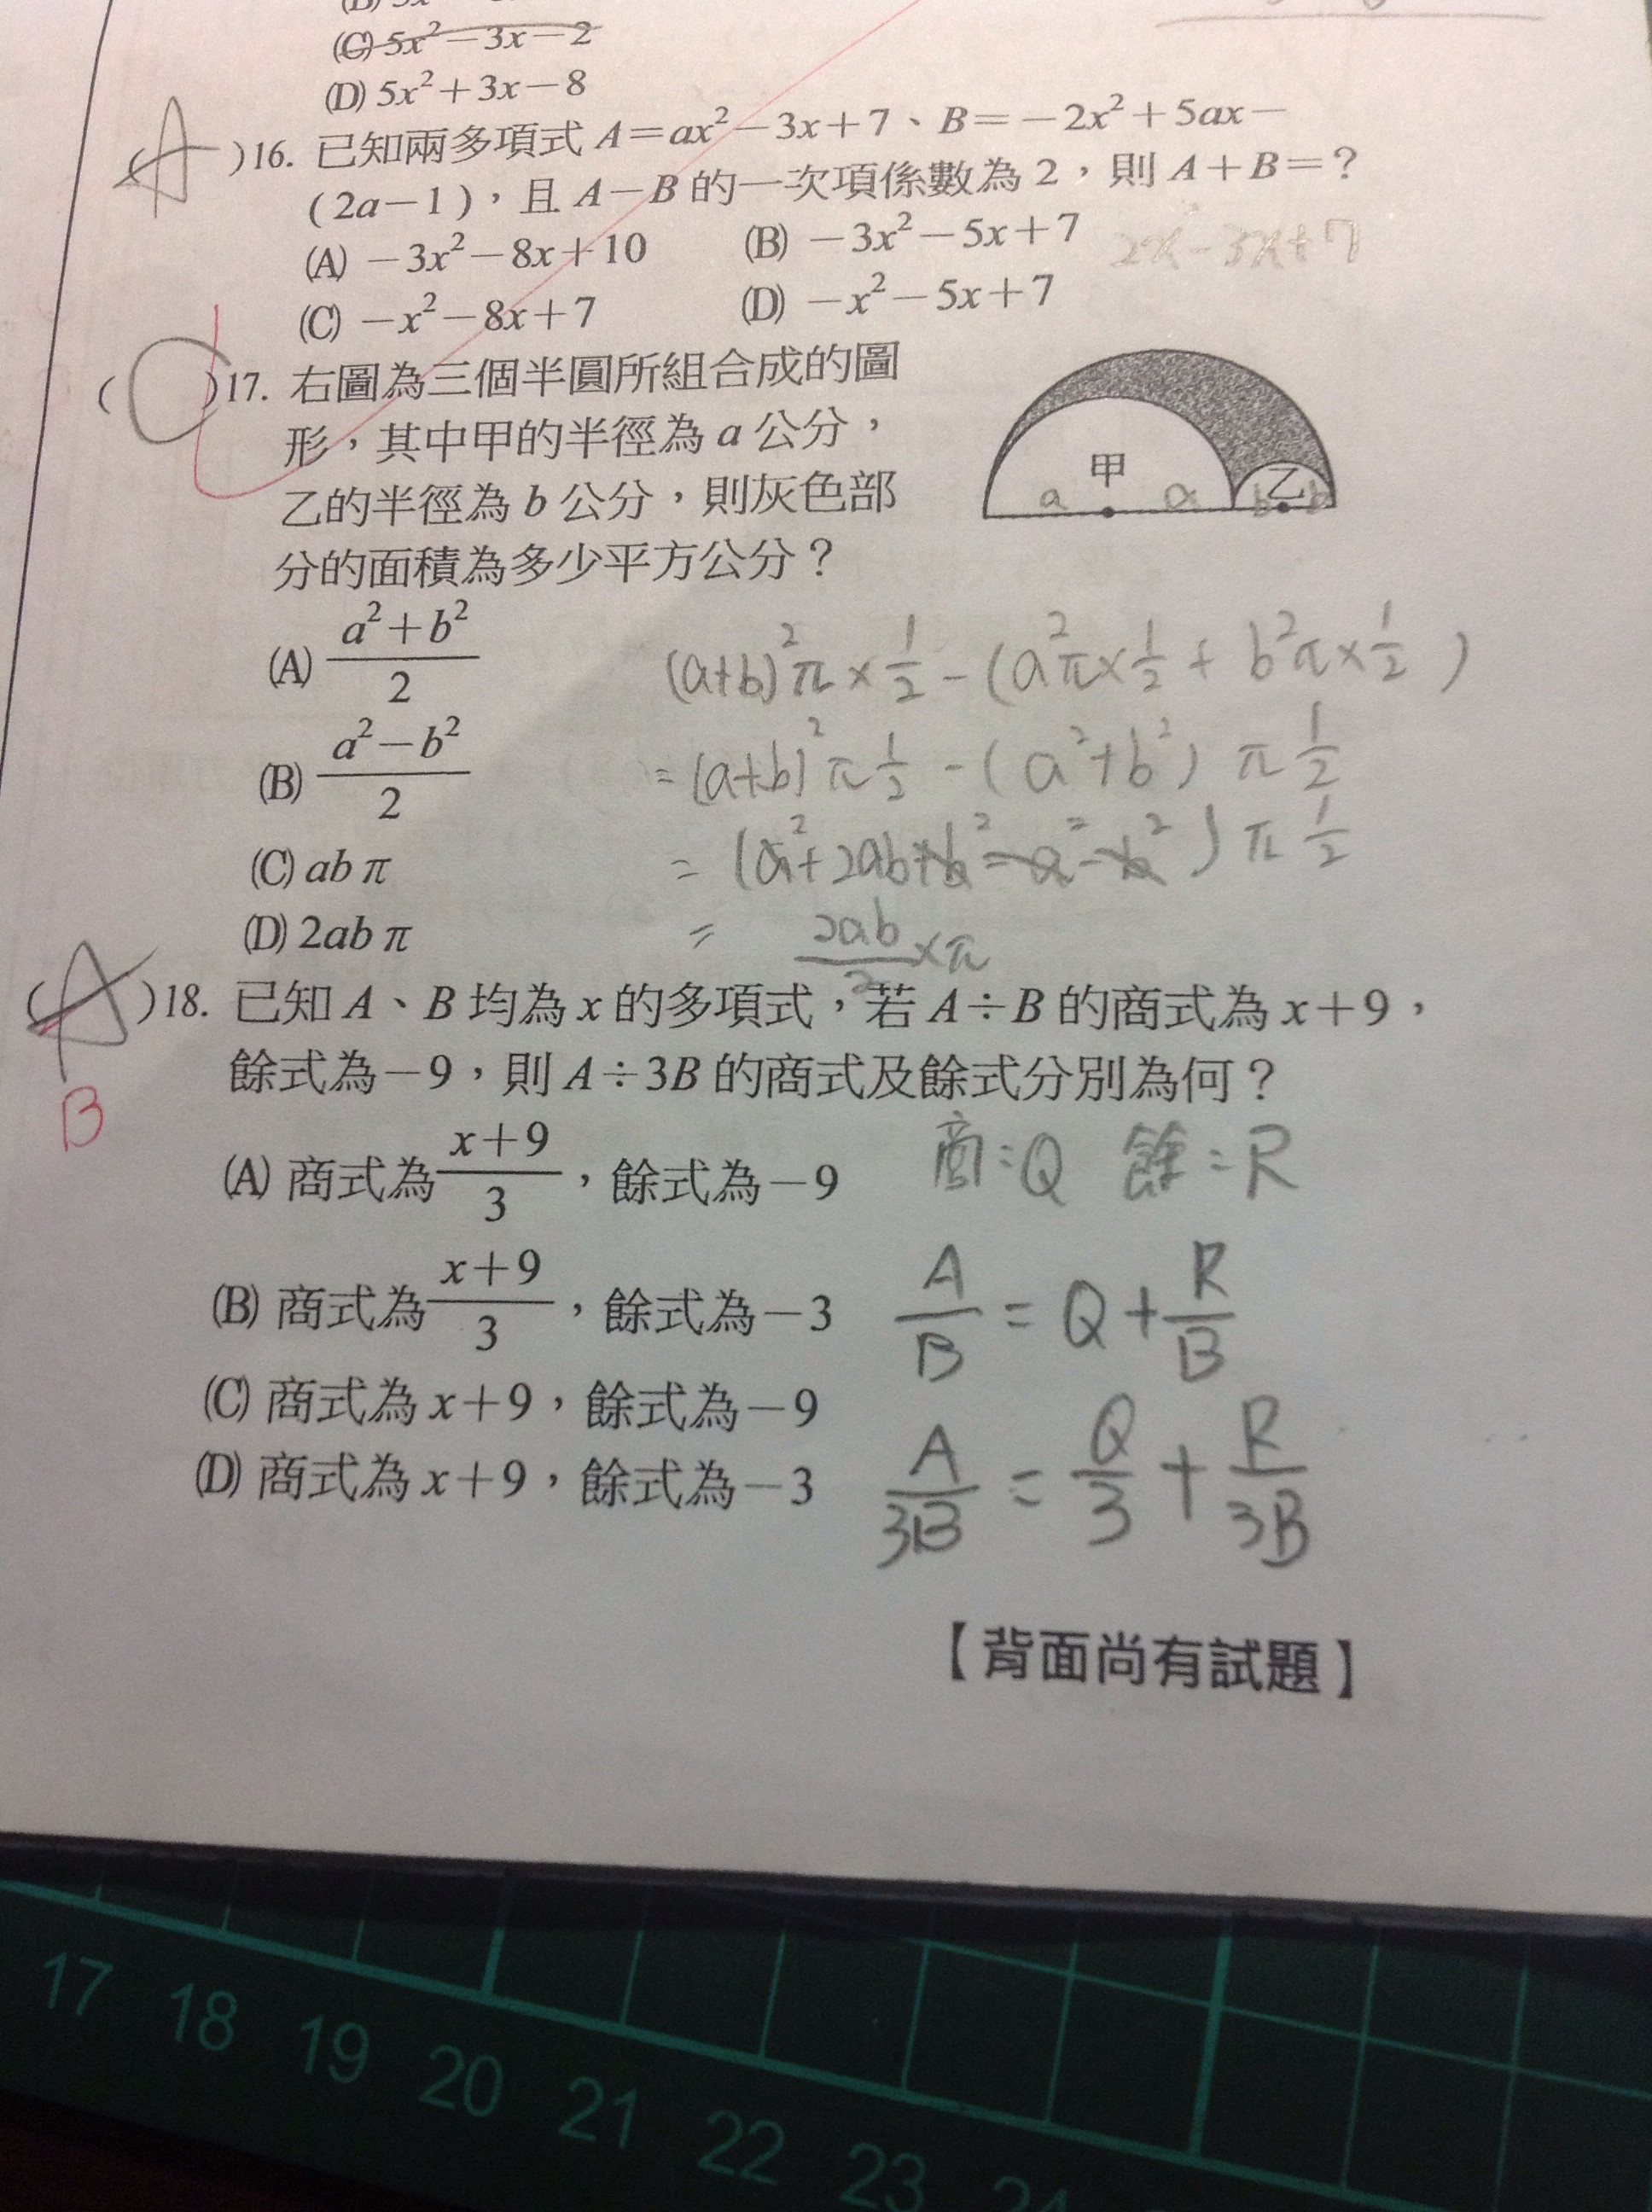 (C) 5x²－3x－2
(D) 5x²＋3x－8
(A)16. 已知兩多項式 A＝ax²－3x＋7、B＝－2x²＋5ax－
(2a－1)，且 A－B 的一次項係數為 2，則 A＋B＝？
(A) －3x²－8x＋10 (B) －3x²－5x＋7 2x－3x＋7
(C) －x²－8x＋7 (D) －x²－5x＋7
(C)17. 右圖為三個半圓所組合成的圖
形，其中甲的半徑為 a 公分，
乙的半徑為 b 公分，則灰色部
分的面積為多少平方公分？
甲 乙
a a b b
(A) a²＋b²/2
(B) a²－b²/2
(C) ab π
(D) 2ab π
(a+b)²π×1/2－(a²π×1/2＋b²π×1/2)
=(a+b)²π1/2－(a²+b²)π1/2
=(a²+2ab+b²－a²－b²)π1/2
=2ab/2×π
(A)18. 已知 A、B 均為 x 的多項式，若 A÷B 的商式為 x＋9，
餘式為－9，則 A÷3B 的商式及餘式分別為何？
B
(A) 商式為 x＋9/3，餘式為－9
(B) 商式為 x＋9/3，餘式為－3
(C) 商式為 x＋9，餘式為－9
(D) 商式為 x＋9，餘式為－3
商:Q 餘:R
A/B=Q+R/B
A/3B=Q/3+R/3B
【背面尚有試題】
17 18 19 20 21 22 23 24